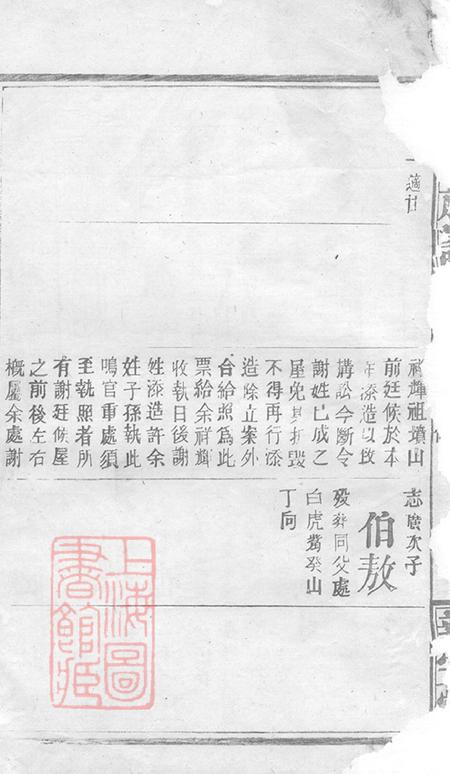 祥輝祖墳山
前廷候於本
年添造以致
講訟今斷令
謝姓已成之
屋免其折毀
不得再行添
造除立案外
合給照為此
票給余祥輝
收執日後謝
姓添造許余
姓子孫執此
鳴官重處須
至執照者所
有謝廷候屋
之前後左右
概屬余處謝
志廣次子
伯敖
歿葬同父處
白虎嘴癸山
丁向
上海圖
書館藏